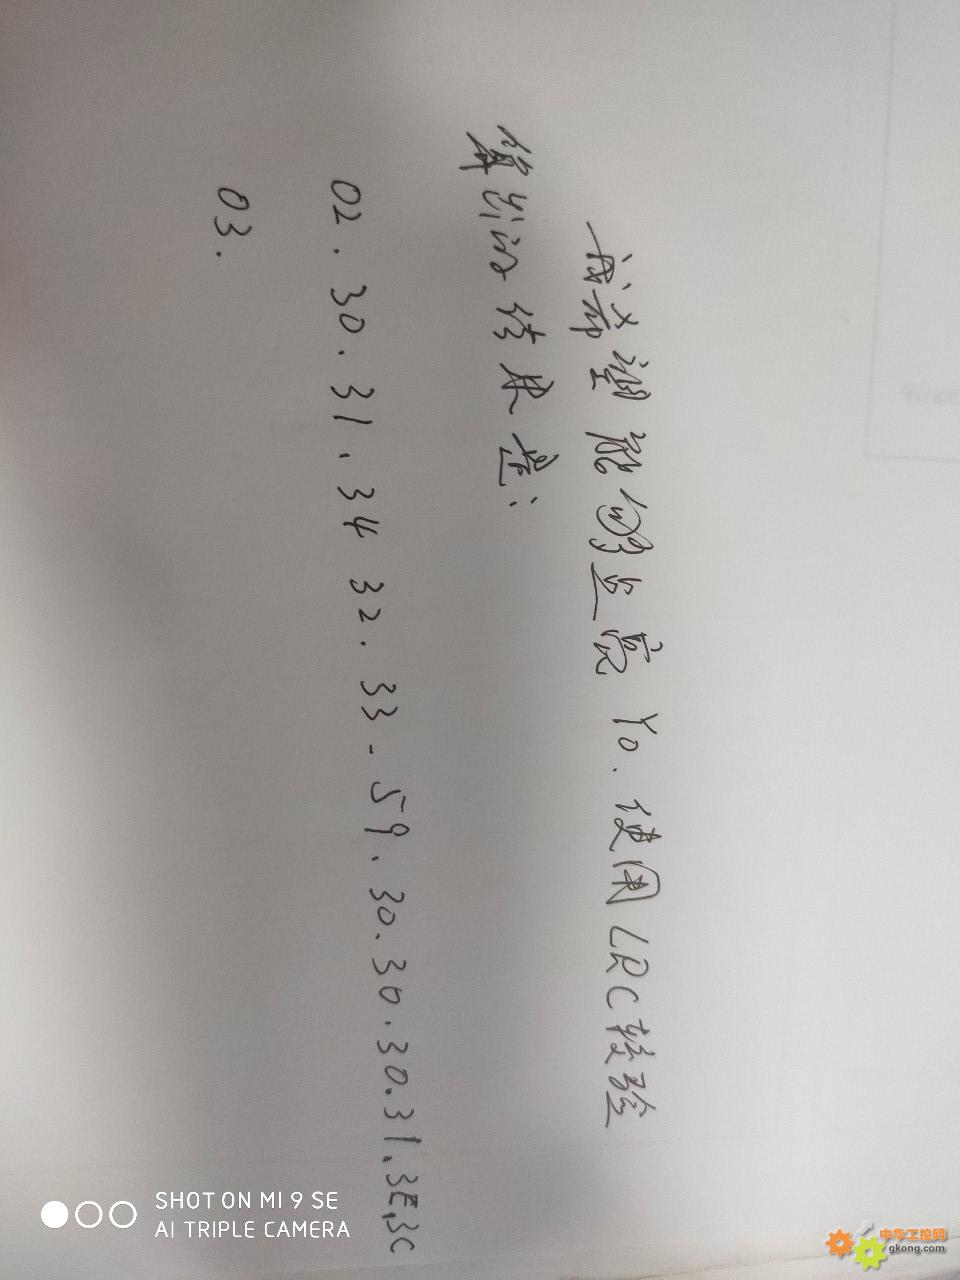 我希望能够点亮 Y0. 使用LRC校验
算出的结果是:
02.30.31.34 32.33-59.30.30.30.31.3E,3C
03.
SHOT ON MI 9 SE
AI TRIPLE CAMERA
中华工控网
gkong.com